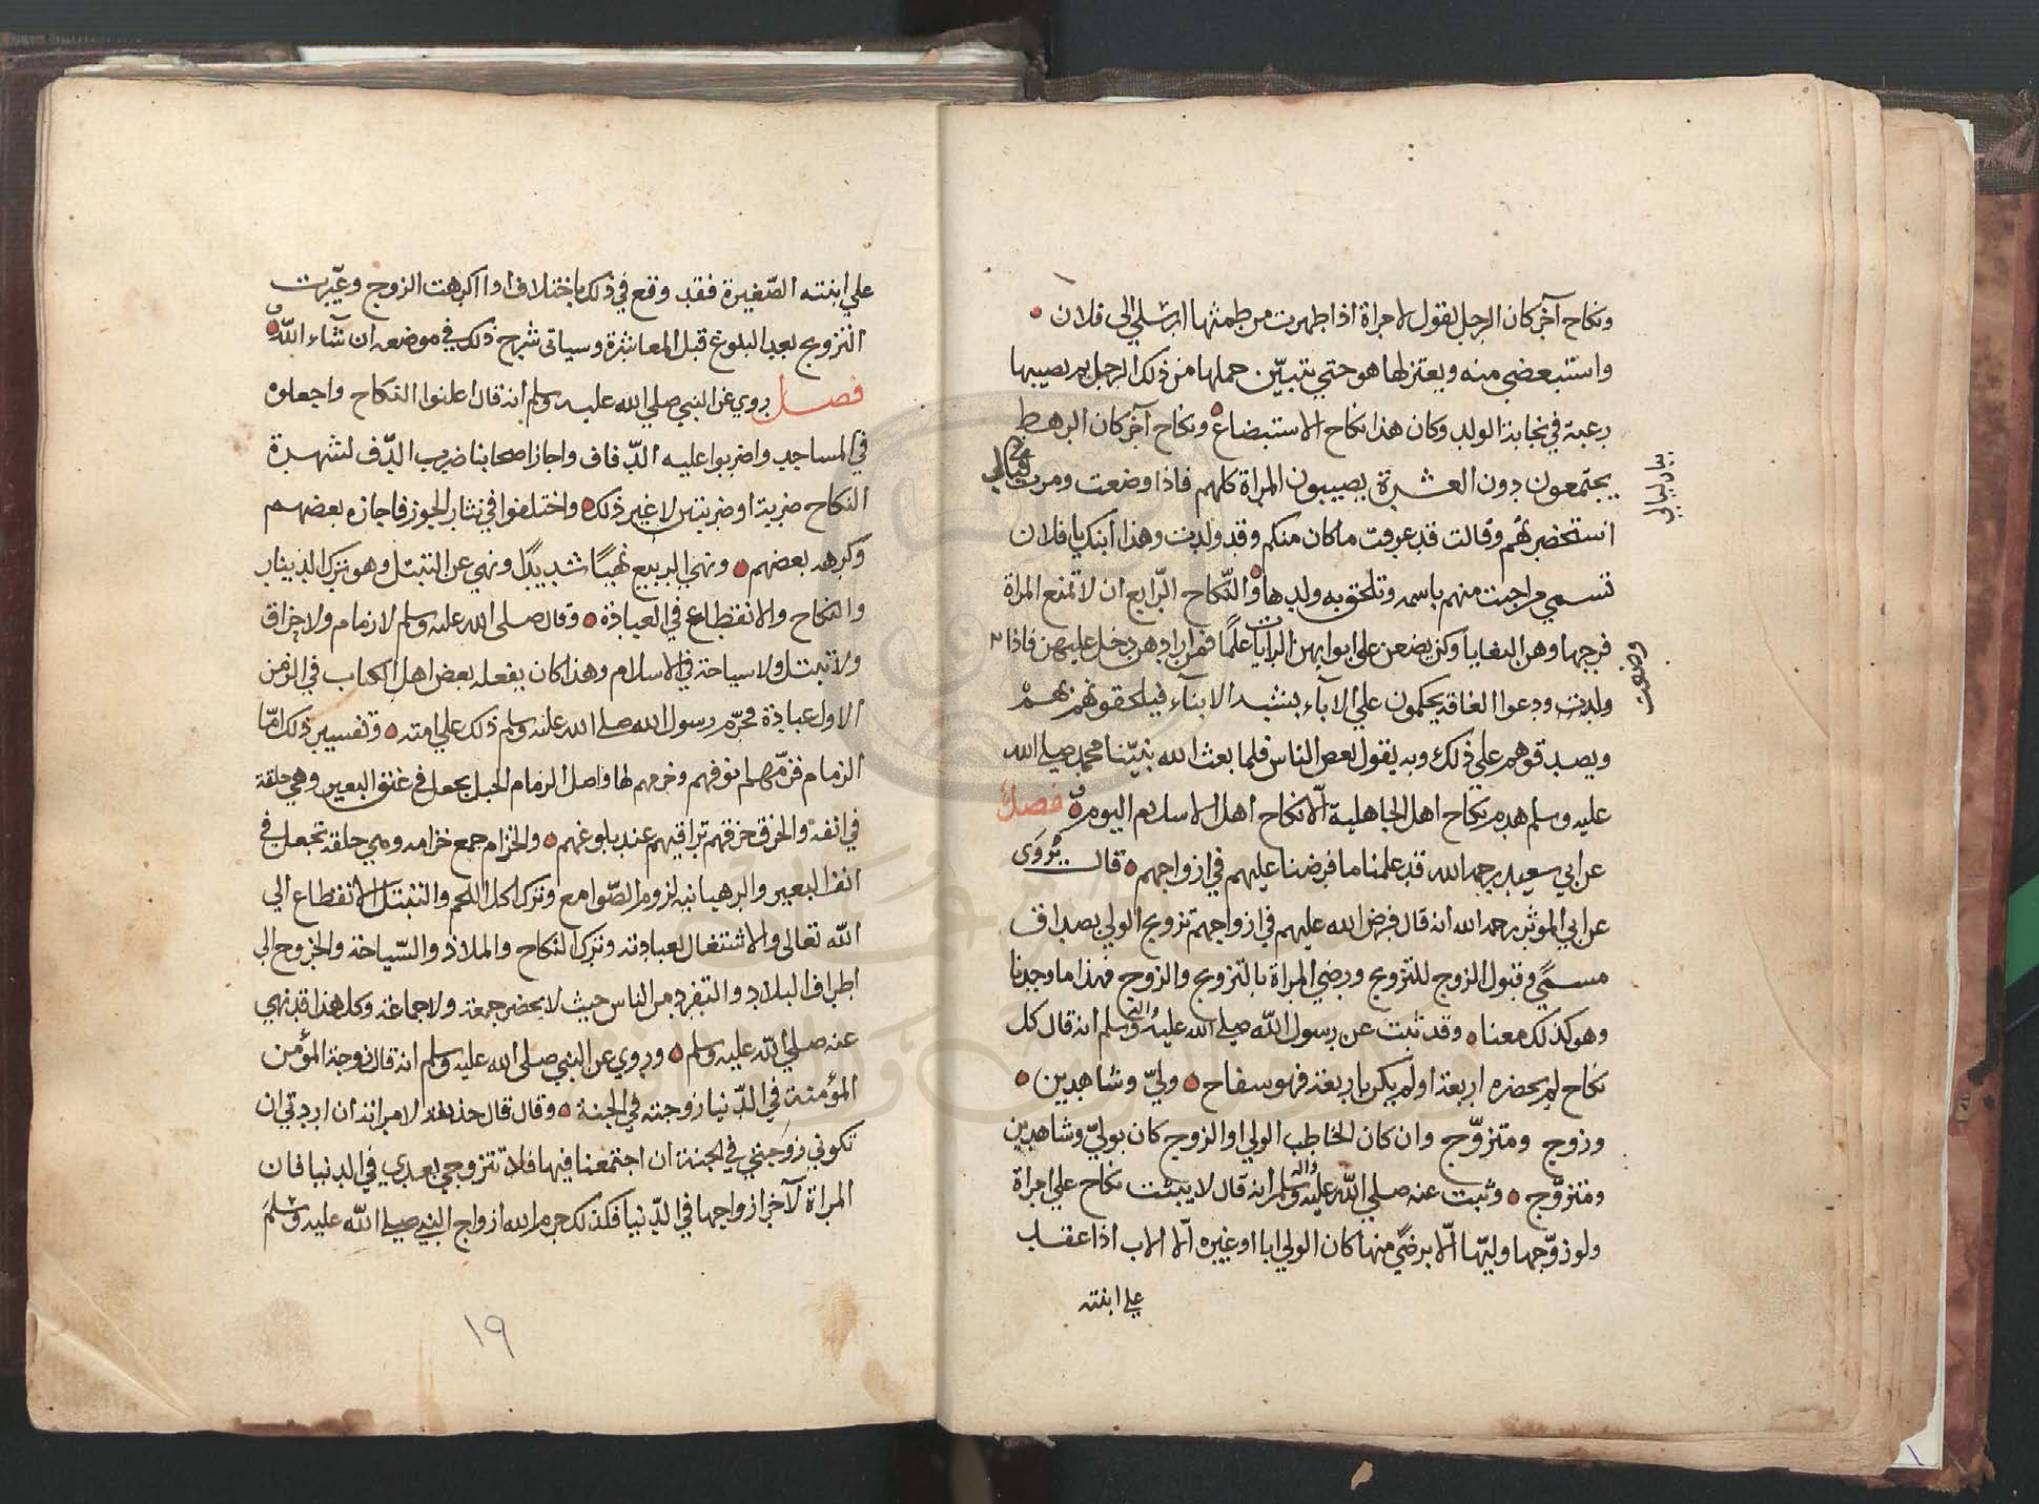 ونكاح آخر كان الرجل يقول لامراة اذا طهرت من طمثها ارسلي الى فلان
واستبضعي منه ويعتزلها هو حتي يتبيّن حملها من ذلك الرجل ثم يصيبها
رغبة في نجابة الولد وكان هذا نكاح الاستبضاع ونكاح آخر كان الرهط
يجتمعون دون العشرة يصيبون المراة كلهم فاذا وضعت ومرت ليالي
بيان ليالي
استحضرتهم وقالت قد عرفت ما كان منكم وقد ولدت وهذا ابنك يا فلان
تسمي من احبت منهم باسمه وتلحق به ولدها والنّكاح الرّابع ان لا تمنع المراة
فرجها وهن البغايا وكن يضعن على ابوابهن الرايات علمًا فمن اراد هن دخل عليهن فاذا
وضعت
ولدت ودعوا القافة يحكمون علي الآباء بشبه الابناء فيلحقونهم بهم
ويصدقوهم على ذلك وبه يقول بعض الناس فلما بعث الله نبيّنا محمد صلى الله
عليه وسلم هدم نكاح اهل الجاهلية الّا نكاح اهل الاسلام اليوم فصل
عن ابي سعيد رحمه الله قد علمنا ما فرضنا عليهم في ازواجهم قال يُروَى
عن ابي المؤثر رحمه الله انه قال فرض الله عليهم في ازواجهم تزويج الولي بصداق
مسمًي وقبول الزوج للتزويج ورضي المراة بالتزويج والزوج فهذا ما وجدنا
وهو كذلك معنا وقد ثبت عن رسول الله صلى الله عليه واله وسلم انه قال كل
نكاح لم يحضره اربعة اولم يكن باربعة فهو سفاح وليّ وشاهدين
وزوج ومتزوّج وان كان الخاطب الولي او الزوج كان بوليّ وشاهدين
ومتزوّج وثبت عنه صلي الله عليه واله وسلم انه قال لا يثبت نكاح علي امراة
ولو زوّجها وليّها الّا برضًي منها كان الولي ابا او غيره الّا الاب اذا عقد
علي ابنته
علي ابنته الصّغيرة فقد وقع في ذلك باختلاف اذا اكرهت الزوج وغيّرت
التزويج بعد البلوغ قبل المعاشرة وسياتى شرح ذلك في موضعه ان شآء الله
فصل روي عن النبي صلي الله عليه وسلم انه قال اعلنوا النكاح واجعلوه
في المساجد واضربوا عليه الدّفاف واجاز اصحابنا ضرب الدّف لشهرة
النكاح ضربة او ضربتين لا غير ذلك واختلفوا في نثار الجوز فاجازه بعضهم
وكرهه بعضهم ونهي الربيع نهيًا شديدًا ونهي عن التبتل وهو ترك الدينار
والنكاح والانقطاع في العبادة وقال صلى الله عليه وسلم لا زمام ولا خزاق
ولا تبتل ولا سياحة في الاسلام وهذا كان يفعله بعض اهل الكتاب في الزمن
الاول عبادة فحرّم رسول الله صلى الله عليه وسلم ذلك علي امته وتفسير ذلك امّا
الزمام فزمّهم انوفهم وخزمهم لها واصل الزمام الحبل يجعل في عنق البعير وهي حلقة
في انفه والخرق خرقهم تراقيهم عند بلوغهم والخزام جمع خزامه وهي حلقة تجعل في
انف البعير والرهبانيه لزوم الصّوامع وترك اكل اللحم والتبتل الانقطاع الي
الله تعالى والاشتغال بعبادته وترك النكاح والملاذ والسّياحة والخروج الى
اطراف البلاد والتفرد من الناس حيث لا يحضر جمعة ولا جماعة وكل هذا قد نهي
عنه صلي الله عليه وسلم وروي عن النبي صلى الله عليه وسلم انه قال زوجة المؤمن
المؤمنة في الدّنيا زوجته في الجنة وقال قال حذيفة لامراته ان اردتي ان
تكوني زوجتي في الجنة ان اجتمعنا فيها فلا تتزوجي بعدي في الدنيا فان
المراة لآخر ازواجها في الدّنيا فكذلك حرم الله ازواج النبي صلي الله عليه وسلم
١٩
١